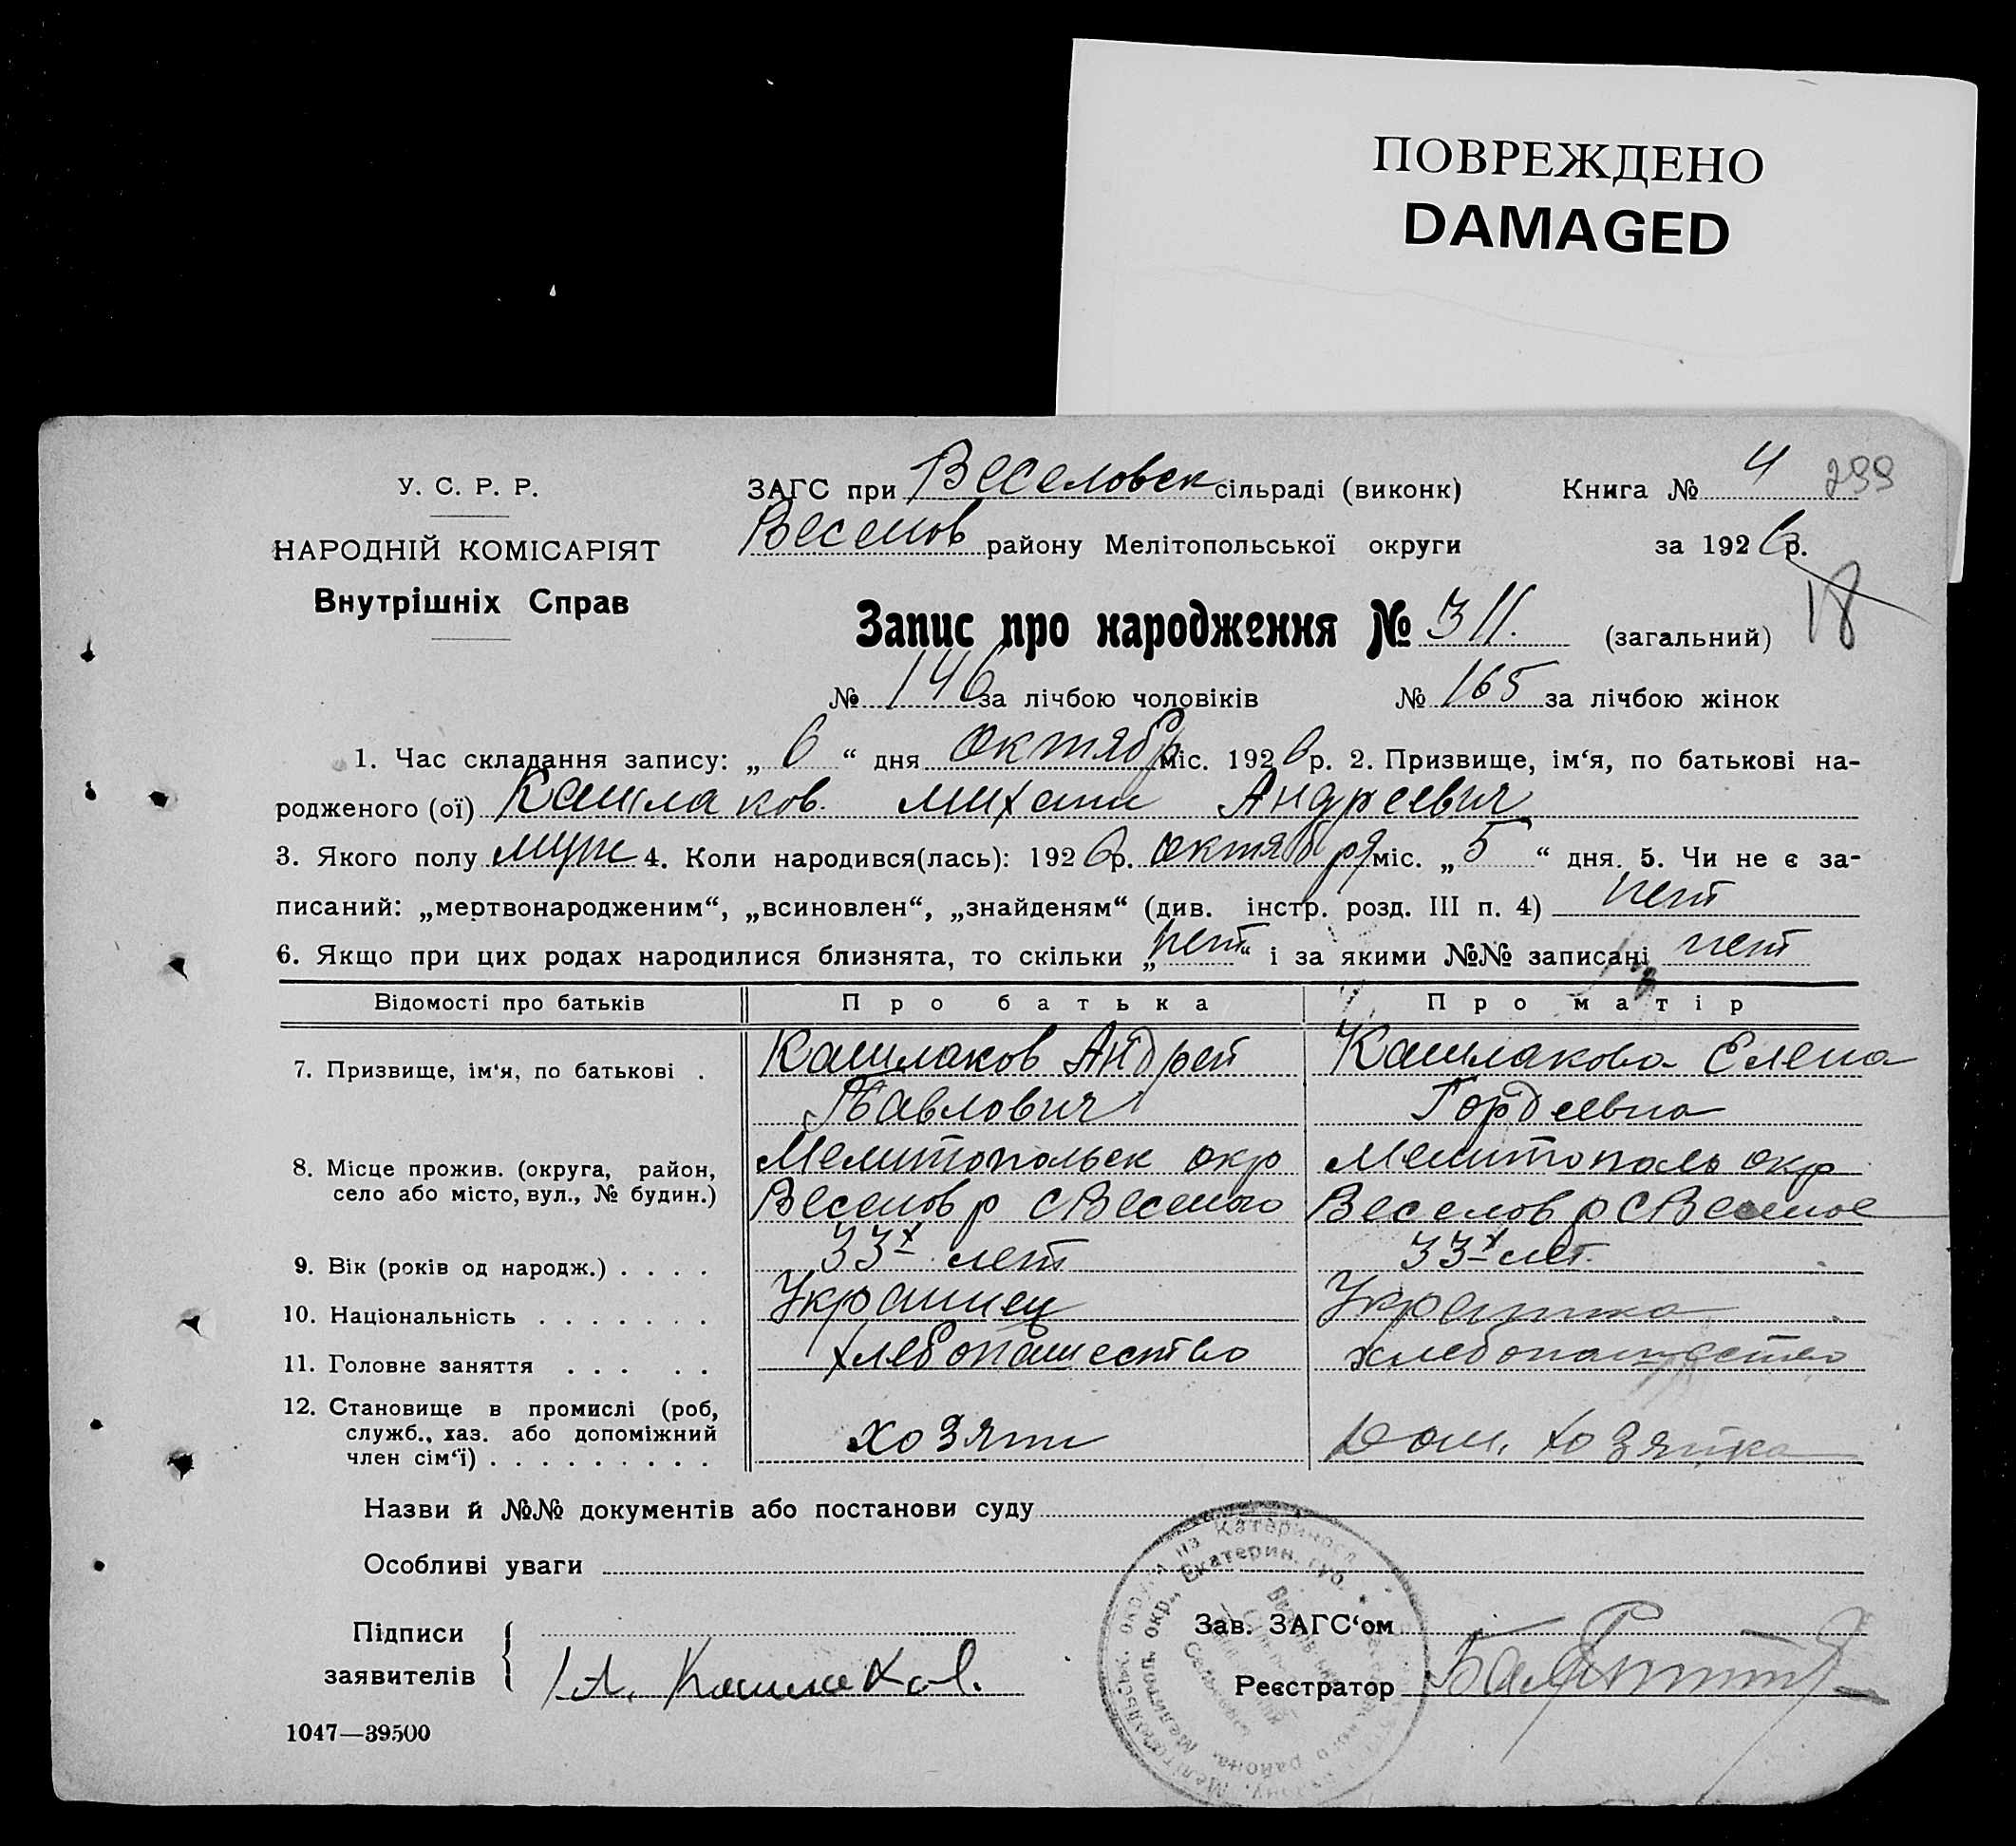 ПОВРЕЖДЕНО
DAMAGED
У. С. Р. Р.
НАРОДНІЙ КОМІСАРІЯТ
Внутрішніх Справ
ЗАГС при Веселовск сільраді (виконк) Книга № 4 299
Веселов району Мелітопольської округи за 1926 р.
18
Запис про народження № 311. (загальний)
№ 146 за лічбою чоловіків № 165 за лічбою жінок
1. Час складання запису: „ 6 “ дня октябр міс. 1926 р. 2. Призвище, ім‘я, по батькові на-
родженого (ої) Кашлаков. Михаил Андреевич
3. Якого полу муж 4. Коли народився(лась): 1926 р. октября міс. „ 5 “ дня. 5. Чи не є за-
писаний: „мертвонародженим“, „всиновлен“, „знайденям“ (див. інстр. розд. III п. 4) нет
6. Якщо при цих родах народилися близнята, то скільки „ нет “ і за якими №№ записані нет
Відомості про батьків Про батька Про матір
7. Призвище, ім‘я, по батькові . Кашлаков Андрей Кашлакова Елена
Павлович Гордеевна
8. Місце прожив. (округа, район, Мелитопольск окр Мелитополь окр
село або місто, вул., № будин.) Веселов р с Веселого Веселов р с Веселое
9. Вік (років од народж.) . . . . 33х лет 33х лет.
10. Національність . . . . . . . Украинец Украинка
11. Головне заняття . . . . . Хлебопашество хлебопашество
12. Становище в промислі (роб,
служб., хаз. або допоміжний хозяин Дом. хозяйка
член сім‘ї) . . . . . . . . .
Назви й №№ документів або постанови суду
Особливі уваги
Підписи Зав. ЗАГС‘ом
заявителів Кашлаков. Реєстратор
1047—39500